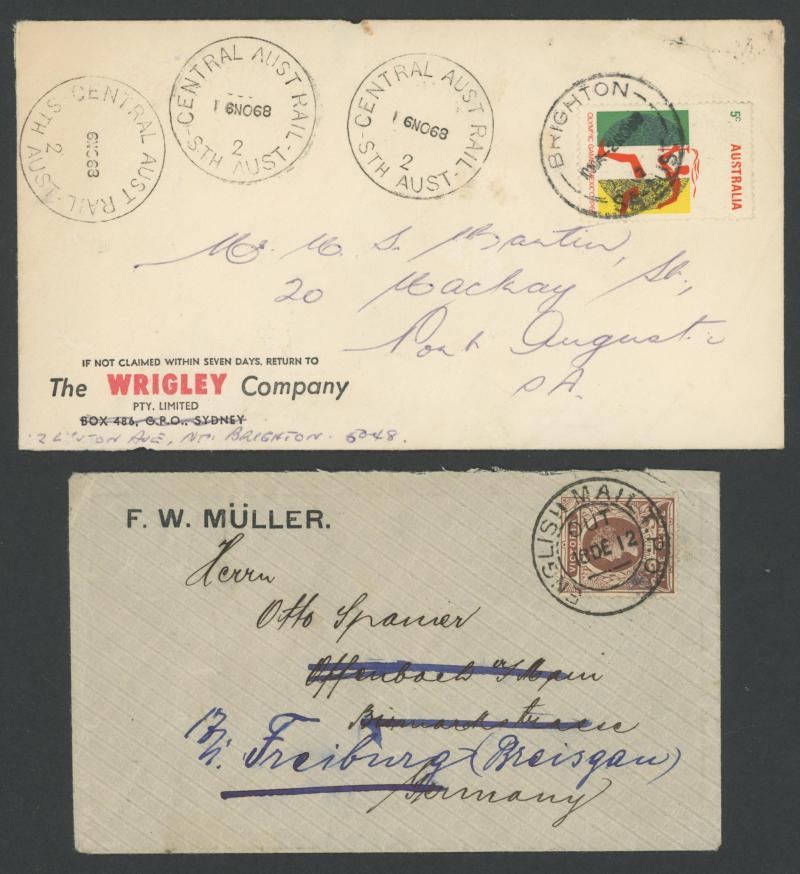 CENTRAL AUST RAIL
6NO68
2
STH AUST
CENTRAL AUST RAIL
16NO68
2
STH AUST
CENTRAL AUST RAIL
16NO68
2
STH AUST
BRIGHTON
5c
AUSTRALIA
OLYMPIC GAMES MEXICO 1968
Mr. M. S. Martin,
20 Mackay St.,
Port Augusta
SA.
IF NOT CLAIMED WITHIN SEVEN DAYS. RETURN TO
The WRIGLEY Company
PTY. LIMITED
BOX 486, G.P.O., SYDNEY
AVE, NTH BRIGHTON. 5048.
F. W. MÜLLER.
ENGLISH MAIL T.P.O.
OUT
18 DE 12
VICTORIA
Herrn
Otto Spanier
Offenbach a/Main
Bismarckstrasse
Freiburg (Breisgau)
Germany